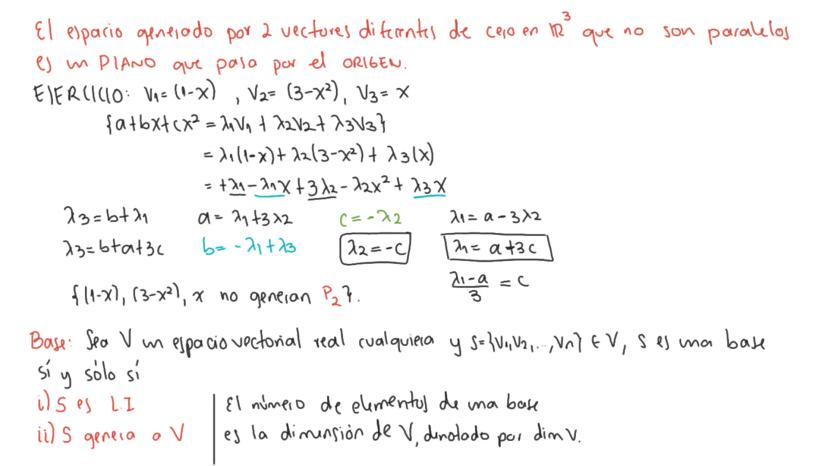 El espacio generado por 2 vectores diferentes de cero en ℝ³ que no son paralelos
es un PLANO que pasa por el ORIGEN.
EJERCICIO: V₁= (1-x) , V₂= (3-x²), V₃= x
{a+bx+cx² = λ₁V₁ + λ₂V₂+ λ₃V₃}
= λ₁(1-x)+ λ₂(3-x²) + λ₃(x)
= +λ₁-λ₁x+3λ₂-λ₂x²+ λ₃x
λ₃=b+λ₁ a= λ₁+3λ₂ c=-λ₂ λ₁= a-3λ₂
λ₃=b+a+3c b= -λ₁+λ₃ λ₂=-c λ₁= a+3c
{(1-x), (3-x²), x no generan P₂}. (λ₁-a)/3 = c
Base: Sea V un espacio vectorial real cualquiera y S={V₁,V₂,...,Vn} ∈ V, S es una base
sí y sólo sí
i) S es L.I El número de elementos de una base
ii) S genera a V es la dimensión de V, denotado por dim V.